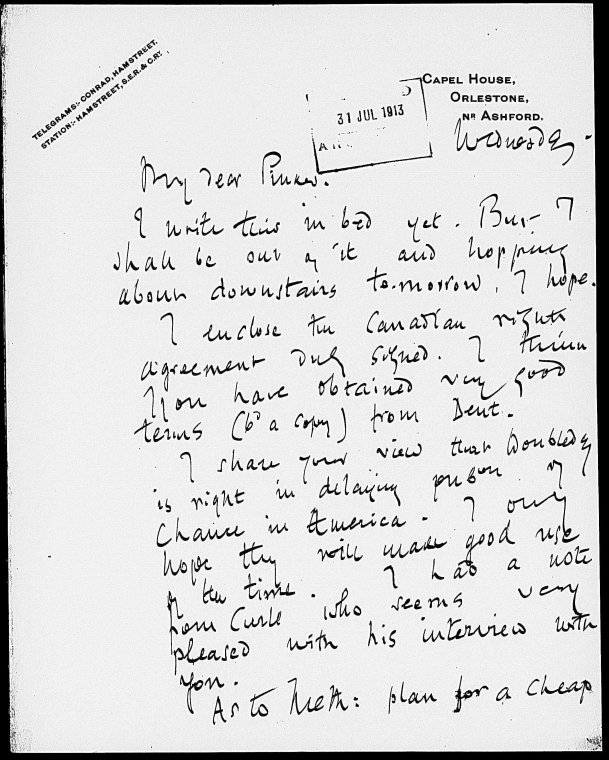 TELEGRAMS:- CONRAD, HAMSTREET.
STATION:- HAMSTREET, S.E.R. & C.RY.
CAPEL HOUSE,
ORLESTONE,
NR ASHFORD.
31 JUL 1913
Wednesday.
My dear Pinker.
I write this in bed yet. But I
shall be out of it and hopping
about downstairs to-morrow, I hope.
I enclose the Canadian rights
agreement duly signed. I think
you have obtained very good
terms (6d a copy) from Dent.
I share your view that Doubleday
is right in delaying pubon of
Chance in America. I only
hope they will make good use
of the time. I had a note
from Curle who seems very
pleased with his interview with
you.
As to Meth: plan for a cheap